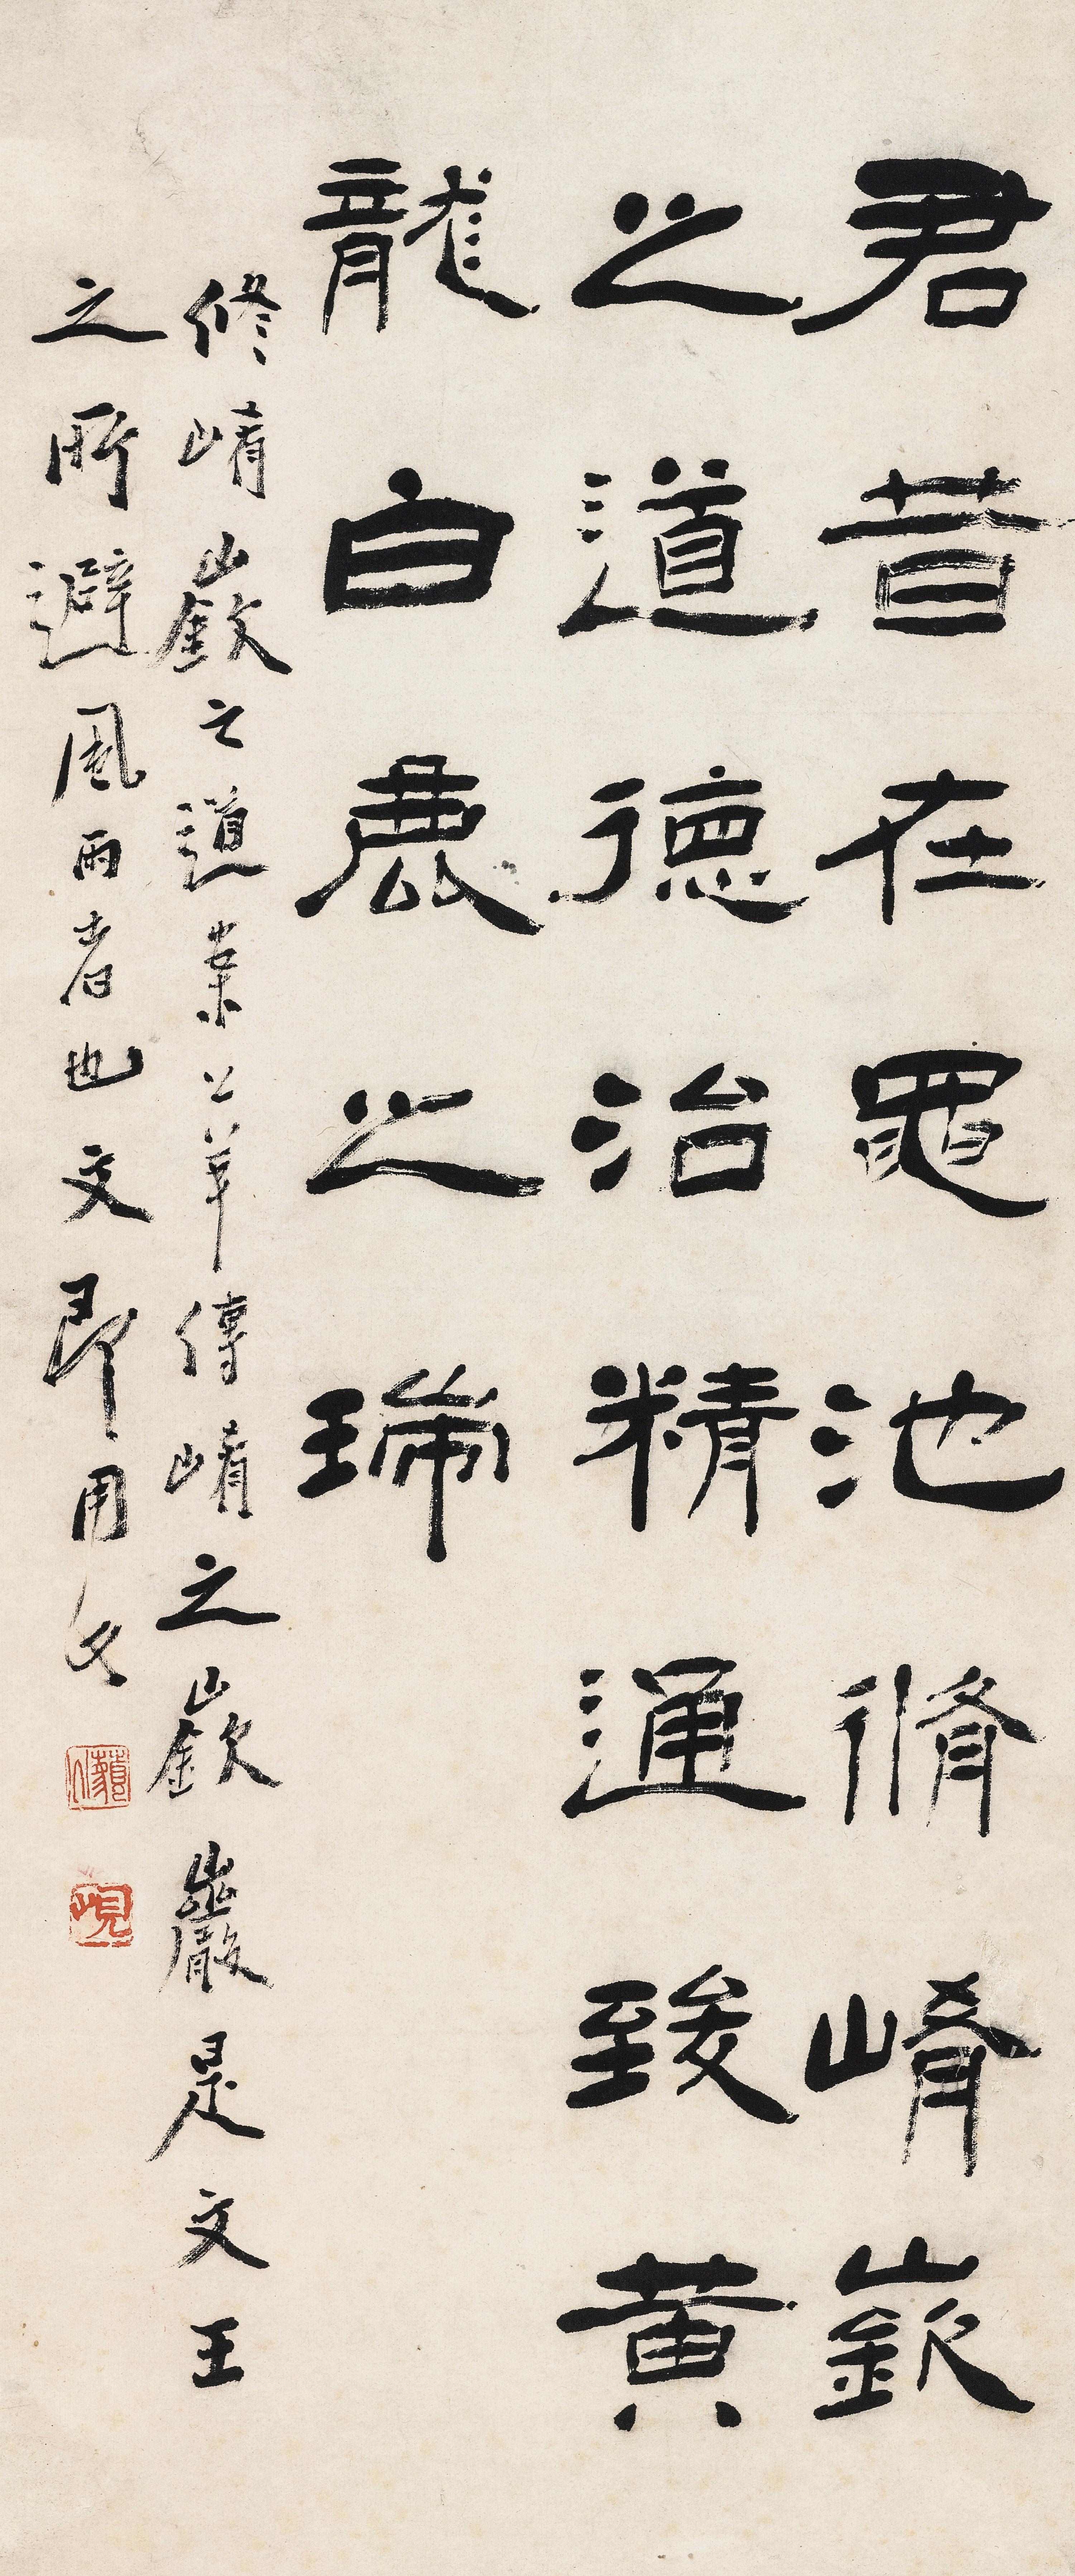 君昔在黽池脩崤嶔
之道德治精通致黃
龍白鹿之瑞
修崤嶔之道案公羊傳崤之嶔巖是文王
之所避風雨者也文即用父
峴